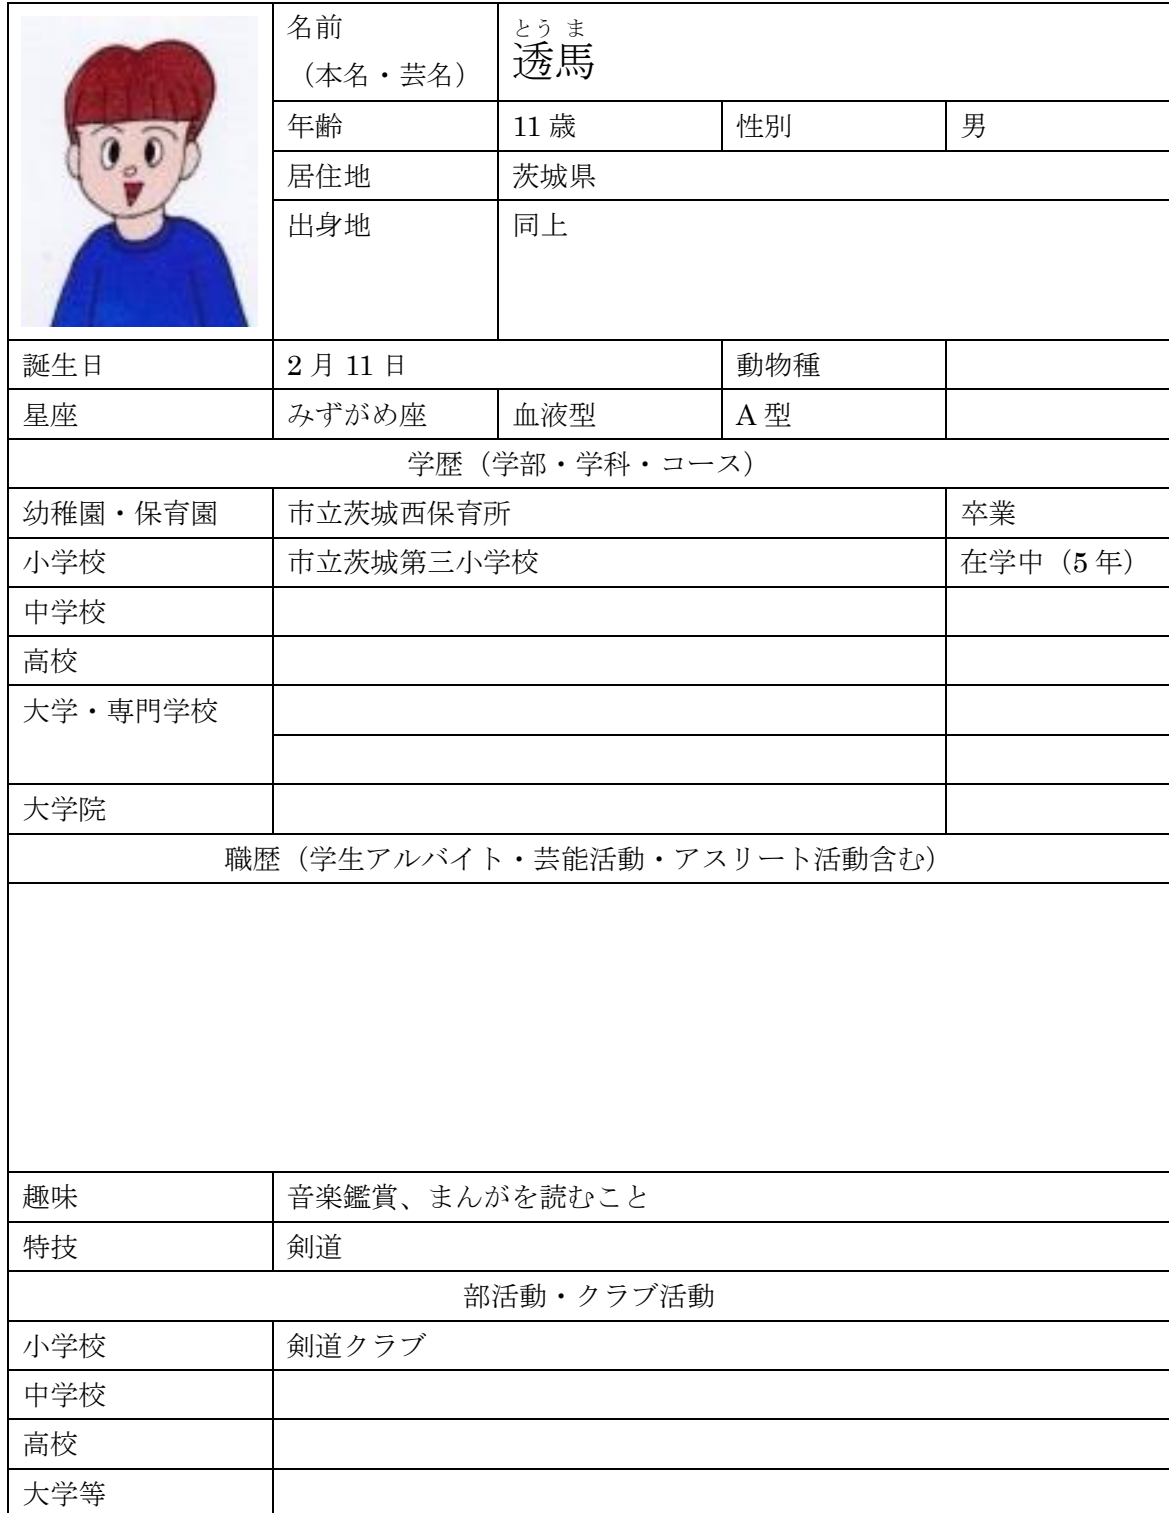 名前
とうま
透馬
（本名・芸名）
年齢 11歳 性別 男
居住地 茨城県
出身地 同上
誕生日 2月11日 動物種
星座 みずがめ座 血液型 A型
学歴（学部・学科・コース）
幼稚園・保育園 市立茨城西保育所 卒業
小学校 市立茨城第三小学校 在学中（5年）
中学校
高校
大学・専門学校
大学院
職歴（学生アルバイト・芸能活動・アスリート活動含む）
趣味 音楽鑑賞、まんがを読むこと
特技 剣道
部活動・クラブ活動
小学校 剣道クラブ
中学校
高校
大学等